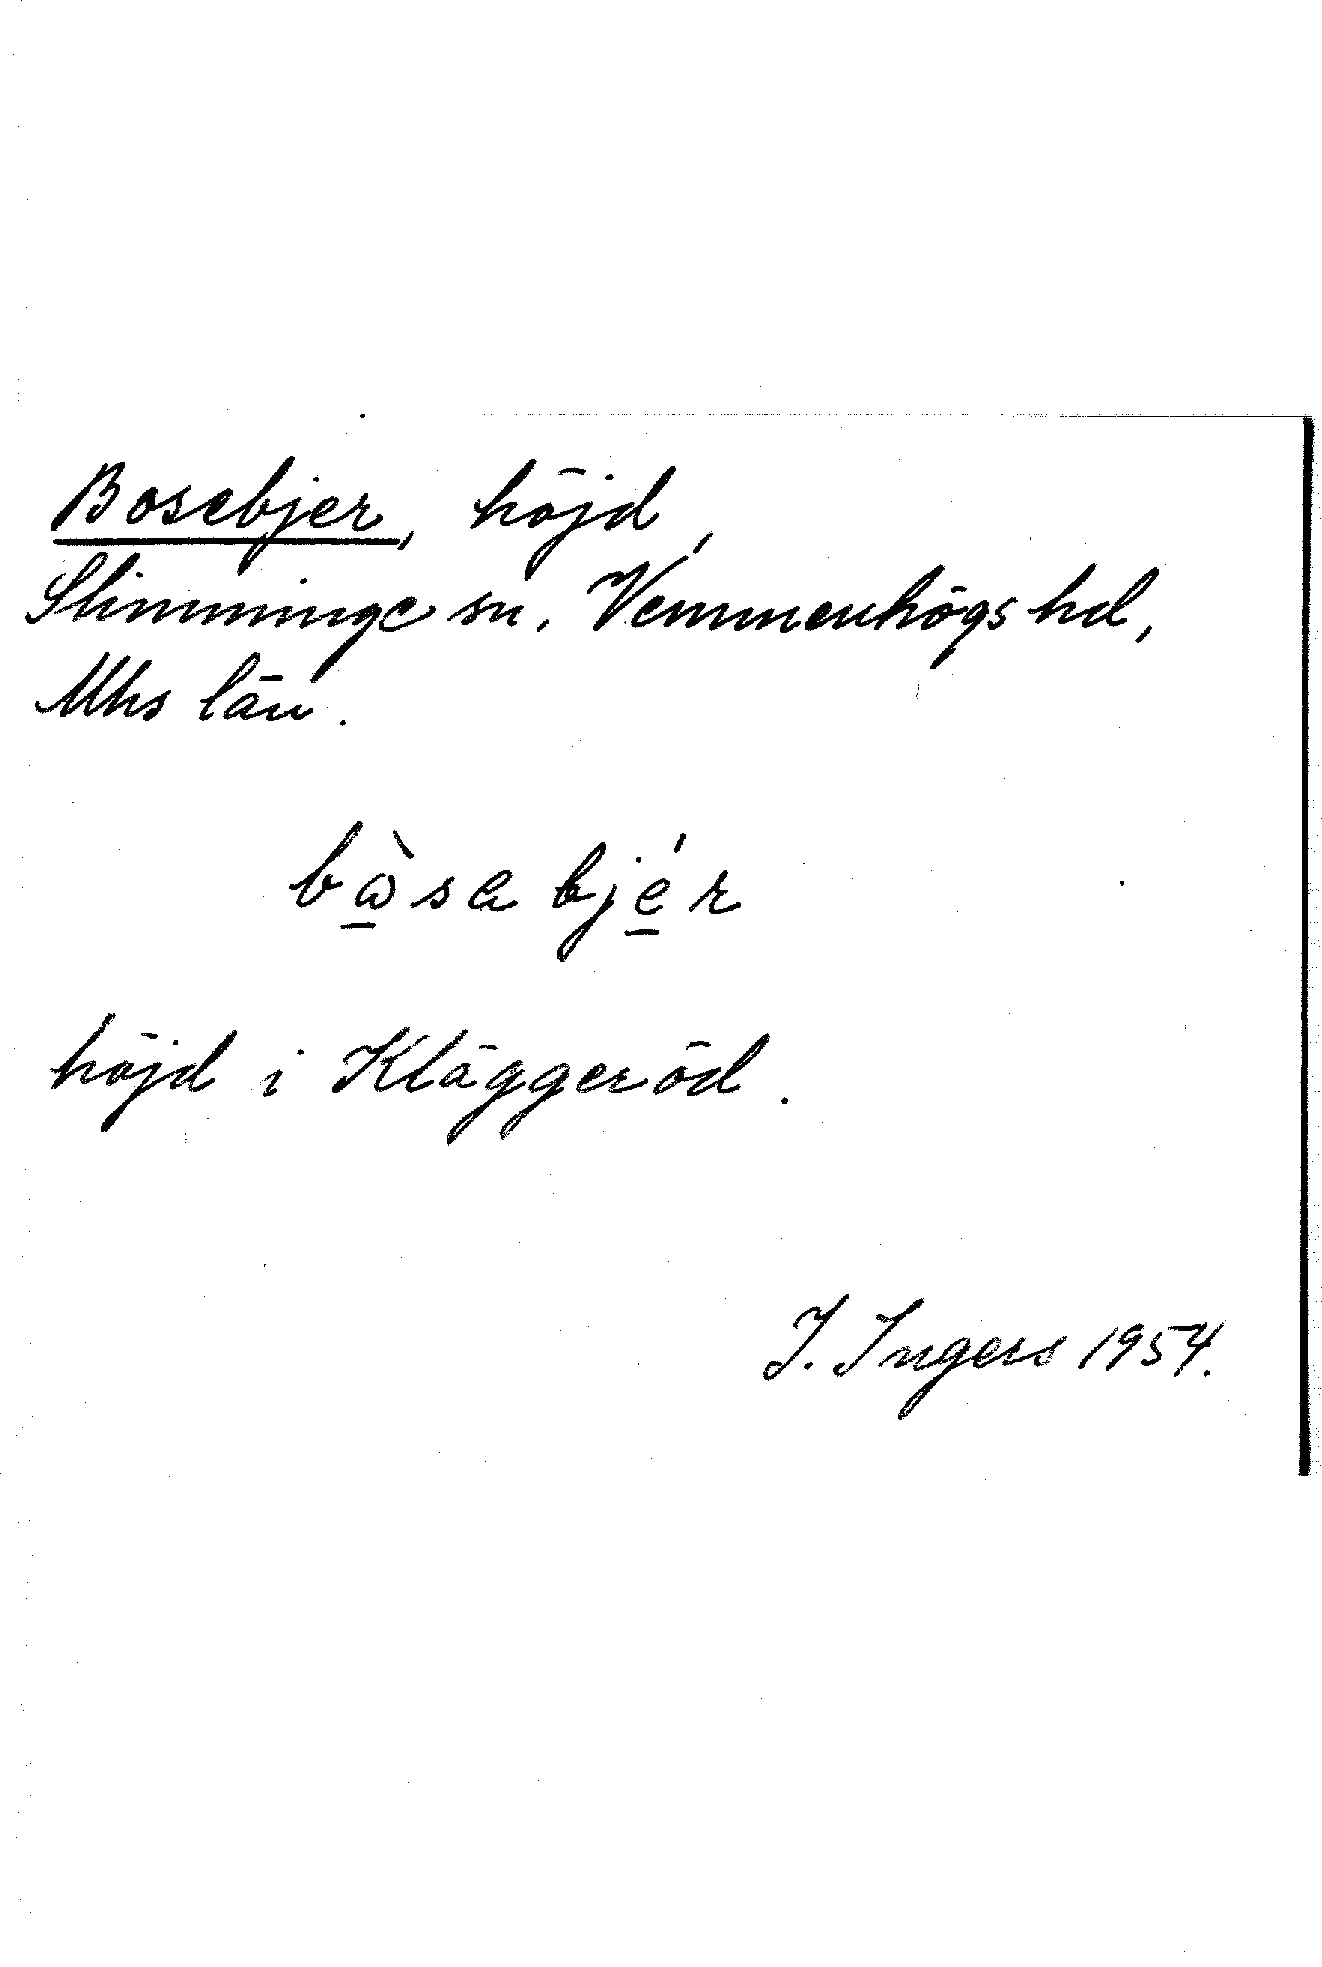 Bosebjer, höjd,
Slimminge sn, Vemmenhögs hd,
Mhs län.
bὼ̱sa bjé̱r
höjd i Kläggeröd.
I. Ingers 1954.